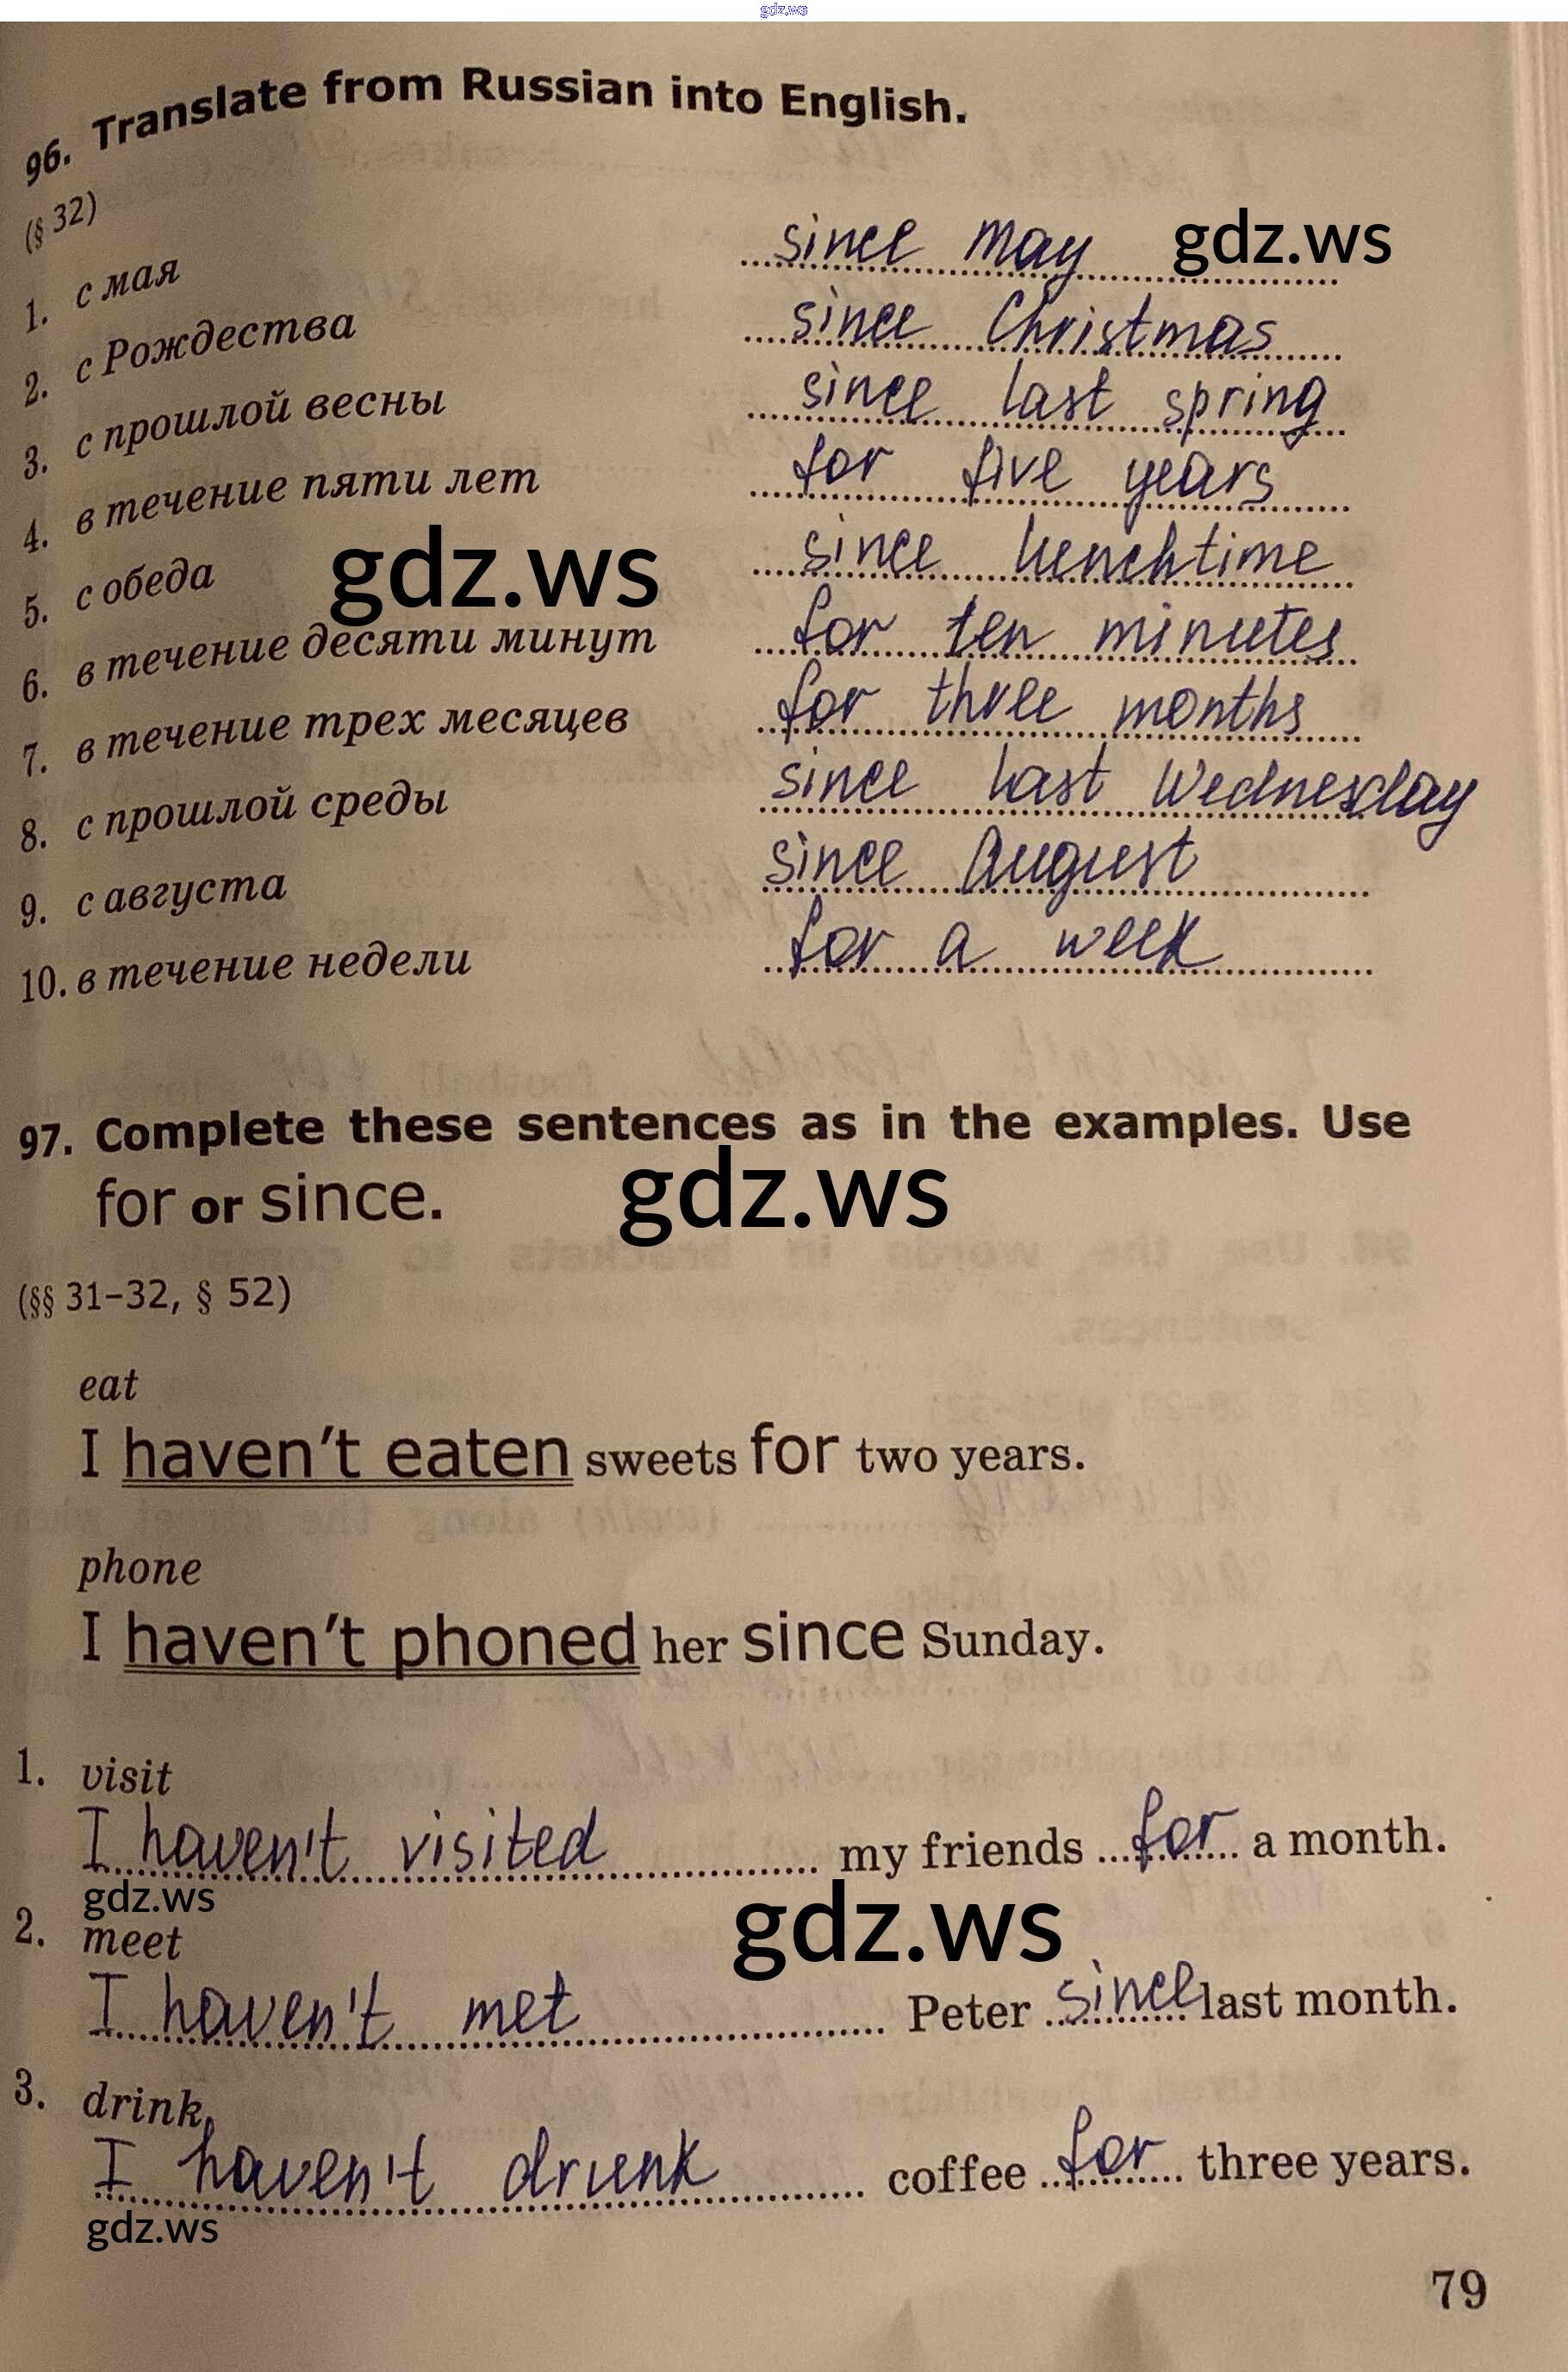 gdz.ws
96. Translate from Russian into English.
(§ 32)
1. с мая since May gdz.ws
2. с Рождества since Christmas
3. с прошлой весны since last spring
4. в течение пяти лет for five years
5. с обеда since lunchtime
gdz.ws
6. в течение десяти минут for ten minutes
7. в течение трех месяцев for three months
8. с прошлой среды since last Wednesday
9. с августа since August
10. в течение недели for a week
97. Complete these sentences as in the examples. Use
for or since.
gdz.ws
(§§ 31–32, § 52)
eat
I haven't eaten sweets for two years.
phone
I haven't phoned her since Sunday.
1. visit
I haven't visited my friends for a month.
gdz.ws
2. meet
gdz.ws
I haven't met Peter since last month.
3. drink
I haven't drunk coffee for three years.
gdz.ws
79